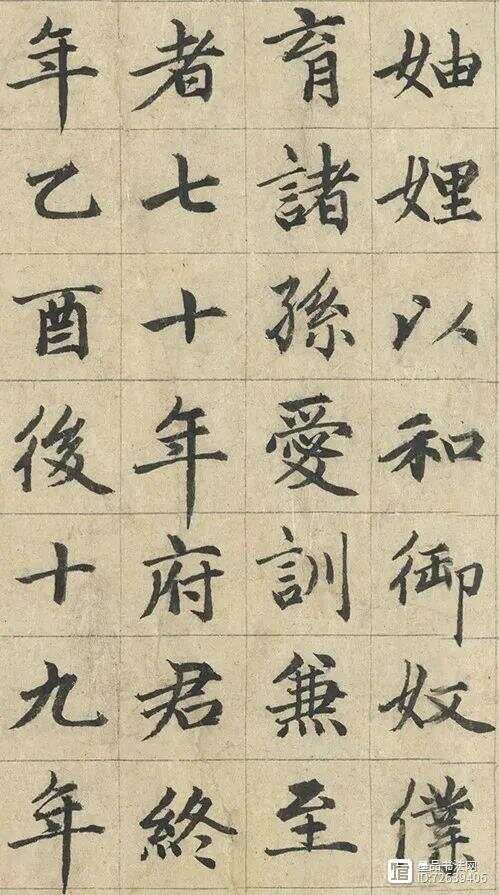 妯娌以和御奴僕
育諸孫愛訓兼至
者七十年府君終
年乙酉後十九年
墨品书法网
ID:72639406